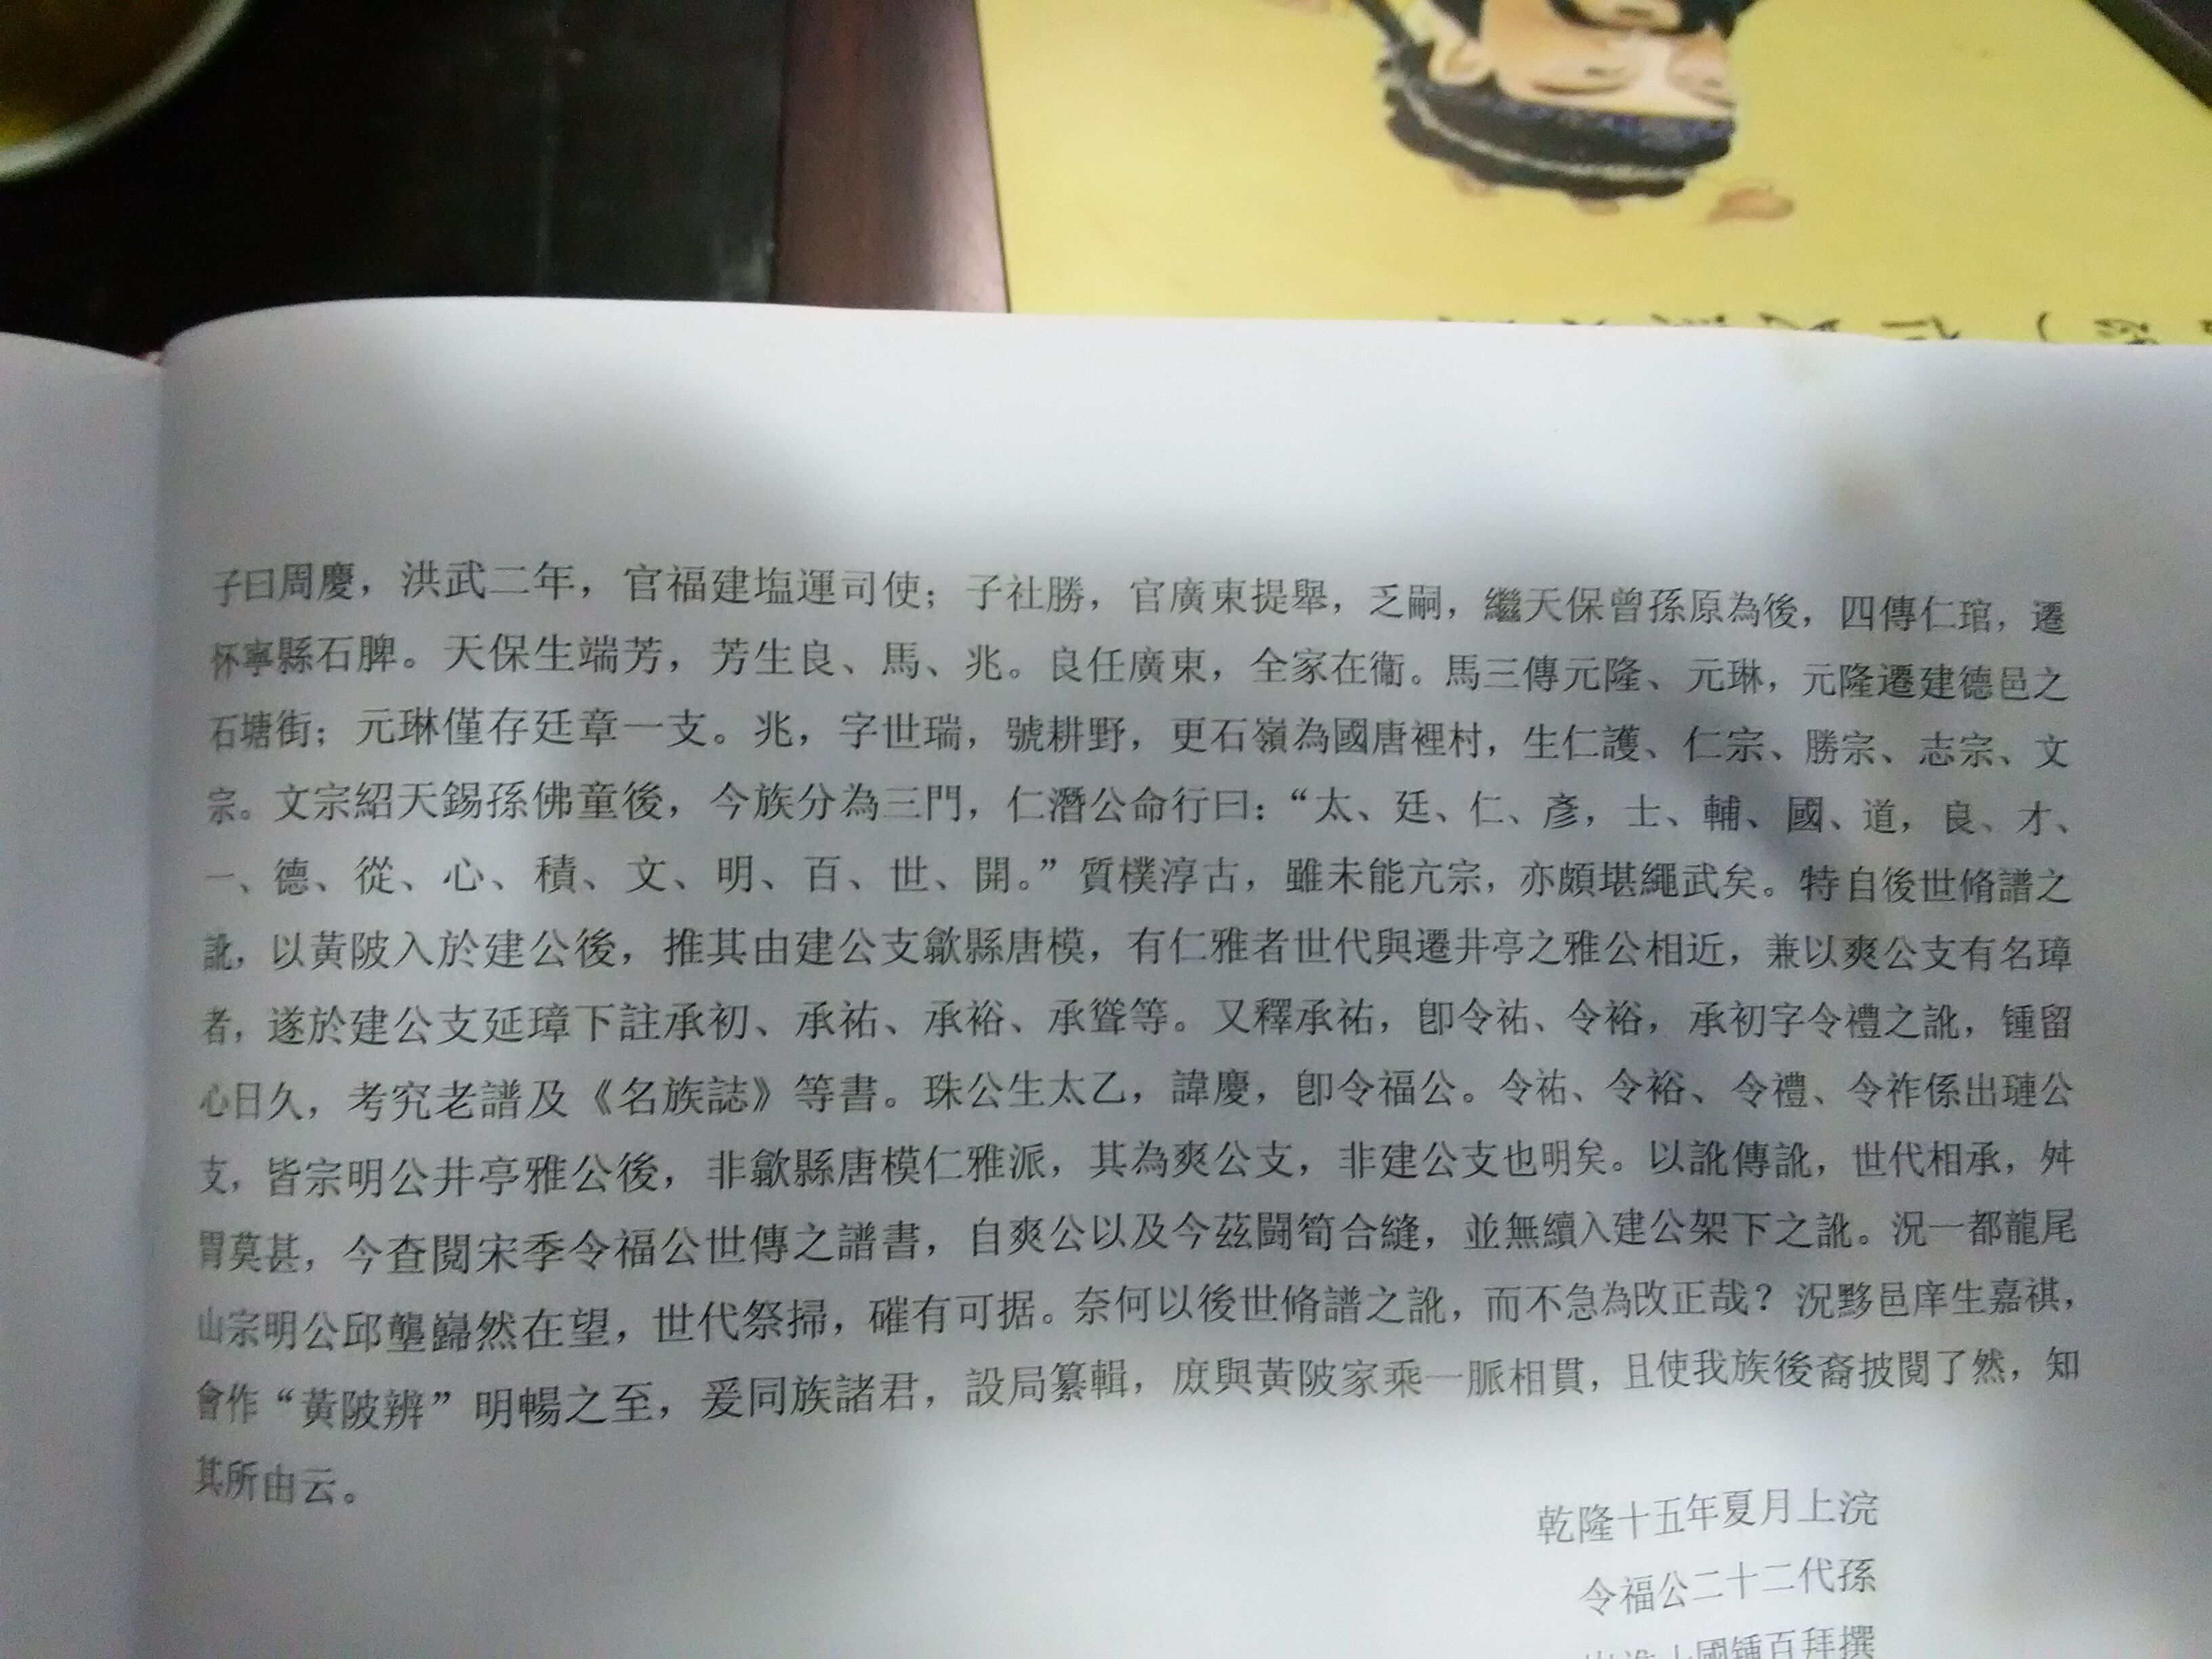 子曰周慶，洪武二年，官福建塩運司使；子社勝，官廣東提舉，乏嗣，繼天保曾孫原為後，四傳仁琯，遷
怀寧縣石脾。天保生端芳，芳生良、馬、兆。良任廣東，全家在衞。馬三傳元隆、元琳，元隆遷建德邑之
石塘街；元琳僅存廷章一支。兆，字世瑞，號耕野，更石嶺為國唐裡村，生仁護、仁宗、勝宗、志宗、文
宗。文宗紹天錫孫佛童後，今族分為三門，仁潛公命行曰：“太、廷、仁、彥，士、輔、國、道，良、才、
一、德、從、心、積、文、明、百、世、開。”質樸淳古，雖未能亢宗，亦頗堪繩武矣。特自後世脩譜之
訛，以黃陂入於建公後，推其由建公支歙縣唐模，有仁雅者世代與遷井亭之雅公相近，兼以爽公支有名璋
者，遂於建公支延璋下註承初、承祐、承裕、承聳等。又釋承祐，卽令祐、令裕，承初字令禮之訛，锺留
心日久，考究老譜及《名族誌》等書。珠公生太乙，諱慶，卽令福公。令祐、令裕、令禮、令祚係出璉公
支，皆宗明公井亭雅公後，非歙縣唐模仁雅派，其為爽公支，非建公支也明矣。以訛傳訛，世代相承，舛
謂莫甚，今查閱宋季令福公世傳之譜書，自爽公以及今茲鬪筍合縫，並無續入建公架下之訛。況一都龍尾
山宗明公邱壟巋然在望，世代祭掃，確有可据。奈何以後世脩譜之訛，而不急為改正哉？況黟邑庠生嘉祺，
會作“黃陂辨”明暢之至，爰同族諸君，設局纂輯，庶與黃陂家乘一脈相貫，且使我族後裔披閱了然，知
其所由云。
乾隆十五年夏月上浣
令福公二十二代孫
國锺百拜撰